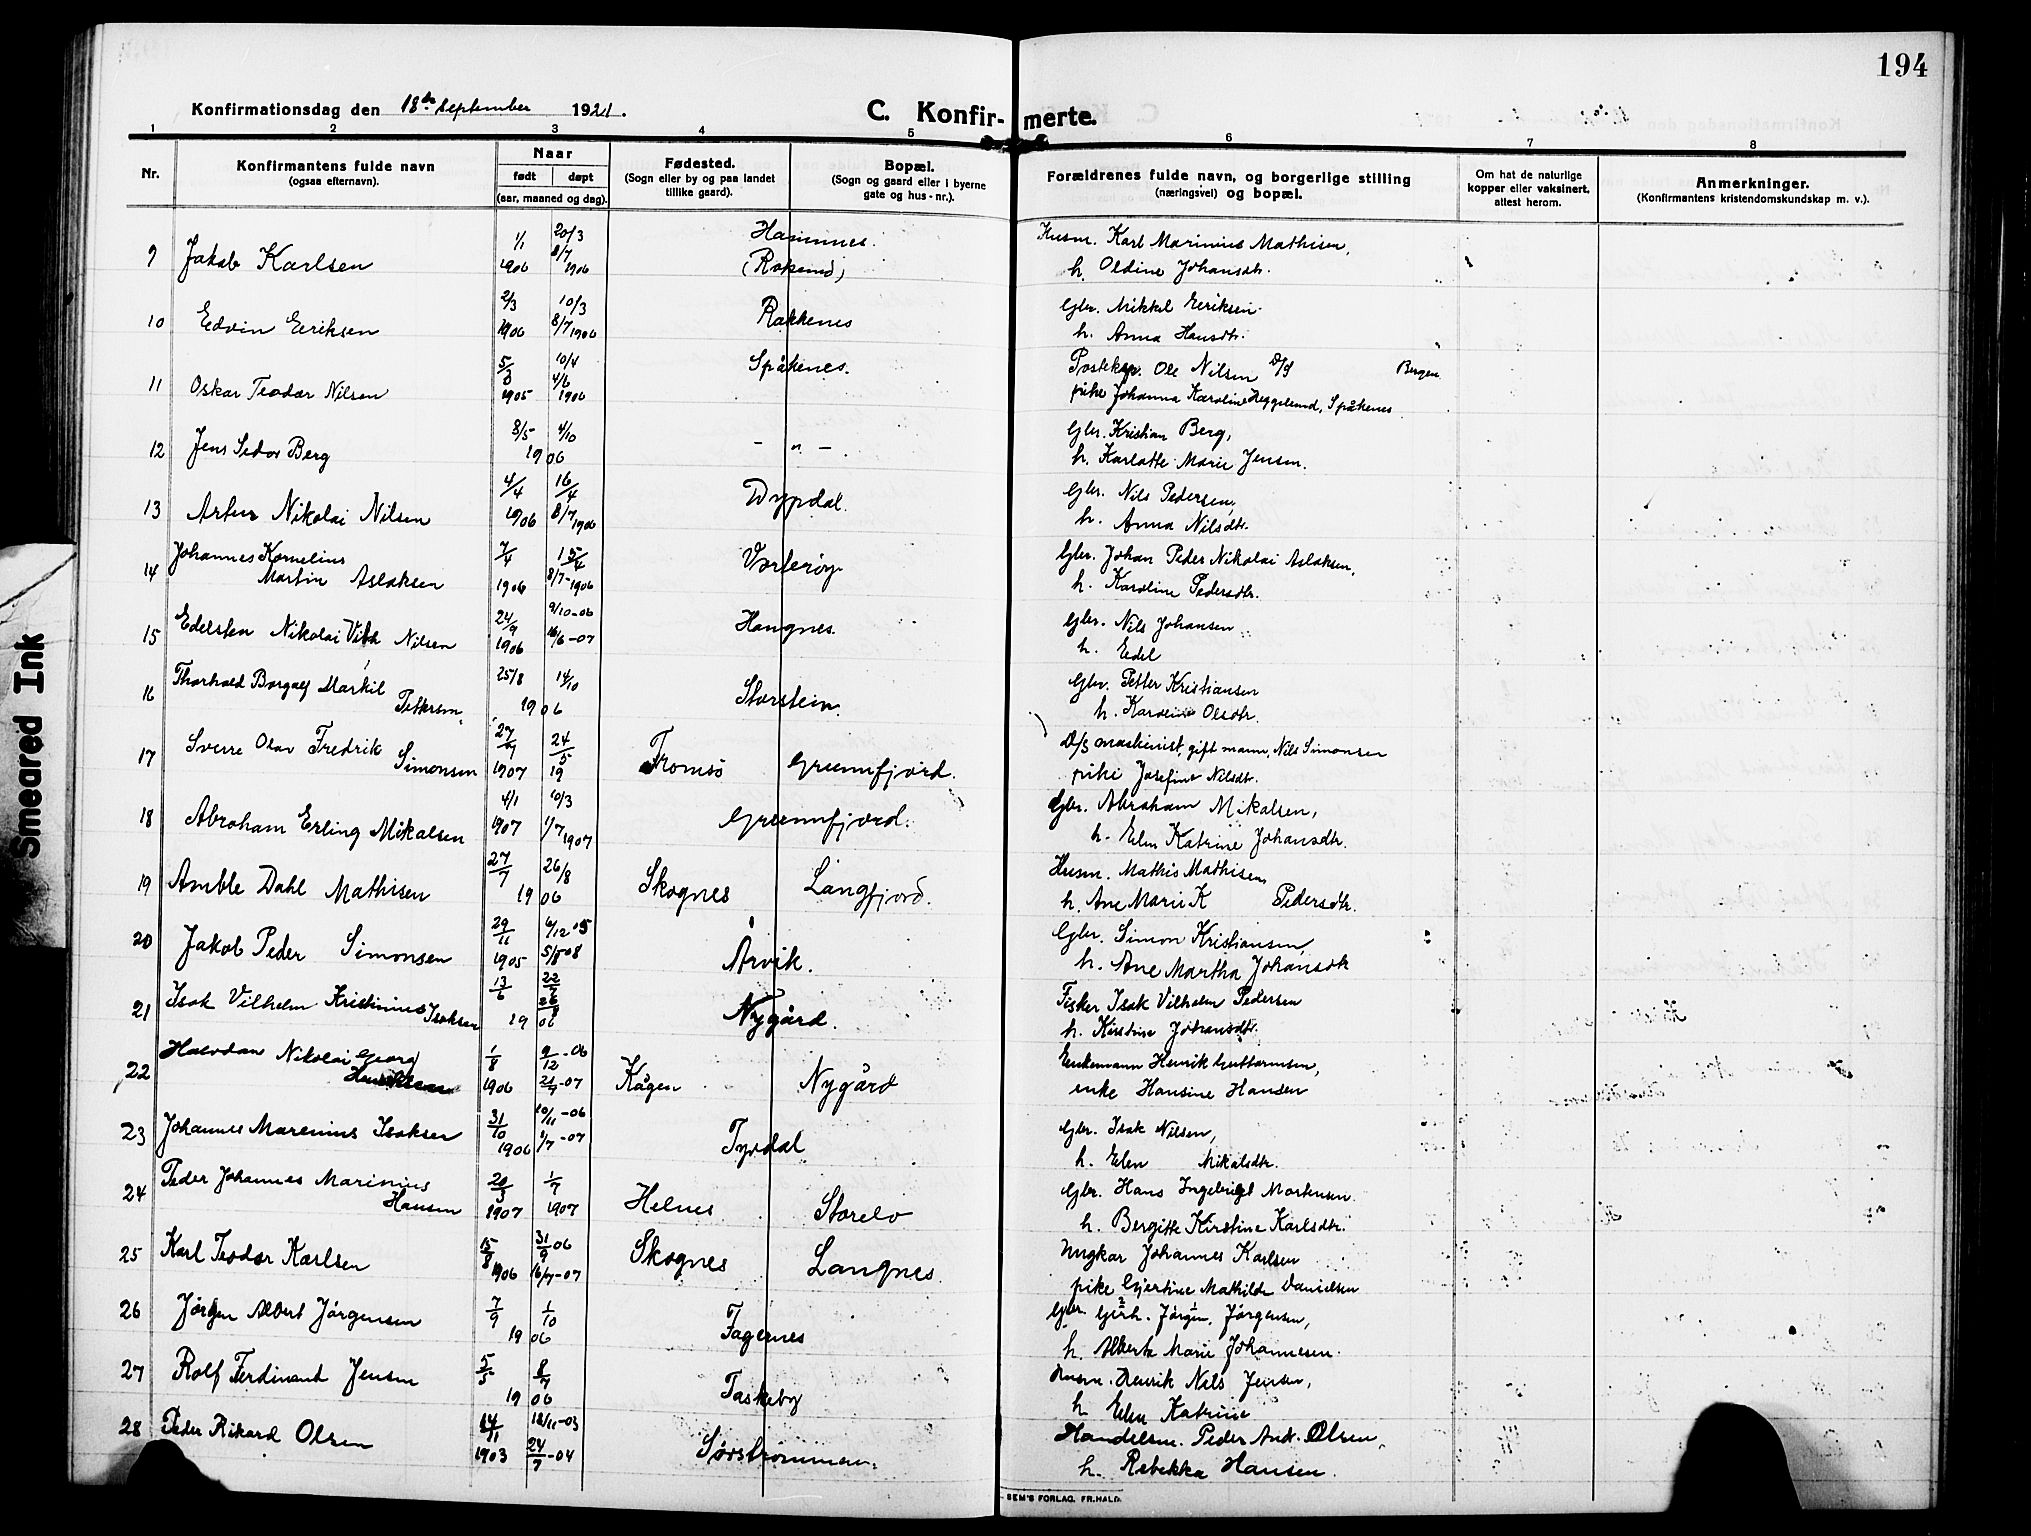 194
Konfirmationsdag den 18de September 1921.
C. Konfirmerte.
1 2 3 4 5 6 7 8
Nr.
Konfirmantens fulde navn
(ogsaa efternavn).
Naar
født døpt
(aar, maaned og dag).
Fødested.
(Sogn eller by og paa landet
tillike gaard).
Bopæl.
(Sogn og gaard eller i byerne
gate og hus-nr.).
Forældrenes fulde navn, og borgerlige stilling
(næringsvei) og bopæl.
Om hat de naturlige
kopper eller vaksinert,
attest herom.
Anmerkninger.
(Konfirmantens kristendomskundskap m. v.).
9 Jakob Karlsen 1/1 1906 20/3 8/7 1906 Hamnes. Husm. Karl Marinius Mathisen,
h. Oldine Johansdtr.
10 Edvin Eeriksen 2/3 1906 10/3 8/7 1906 Rakkenes Gbr. Mikkel Eeriksen
h. Anna Hansdtr.
11 Oskar Teodor Nilsen 5/8 1905 10/4 4/6 1906 Spåkenes. Ole Nilsen D/S Bergen
pike Johanna Karoline Heggelund, Spåkenes
12 Jens Sedor Berg 8/5 4/10 1906 - " - Gbr. Kristian Berg,
h. Karlotte Marie Jensen.
13 Artur Nikolai Nilsen 4/4 1906 16/4 8/7 1906 Dypdal. Gbr. Nils Pedersen,
h. Anna Nilsdtr.
14 Johannes Kornelius
Martin Aslaksen 7/4 1906 15/4 8/7-1906 Vorterøy Gbr. Johan Peder Nikolai Aslaksen,
h. Karoline Pedersdtr.
15 Edelsten Nikolai Nilsen 24/9 1906 9/10-06 16/6-07 Haugnes. Gbr. Nils Johansen
h. Edel
16 Thorhold Borgolf Markil
Pettersen. 25/8 14/10 1906 Storstein. Gbr. Petter Kristiansen
h. Karoline Olsdtr.
17 Sverre Olav Fredrik
Simonsen 1907 24/5 19 Tromsø Grunnfjord. D/S maskinist, gift mann, Nils Simonsen
pike Josefine Nilsdtr.
18 Abraham Erling Mikalsen 4/1 1907 10/3 1/7 1907 Grunnfjord. Gbr. Abraham Mikalsen,
h. Elen Katrine Johansdtr.
19 Amble Dahl Mathisen 27/7 26/8 1906 Skognes Langfjord. Husm. Mathis Mathisen
h. Ane Marie K Pedersdtr.
20 Jakob Peder Simonsen 29/11 1905 6/12 05 5/8-08 Årvik. Gbr. Simon Kristiansen,
h. Ane Martha Johansdtr
21 Isak Vilhelm Kristinius Isaksen 13/6 1906 Nygård. Fisker Isak Vilhelm Pedersen
h. Kirstine Johansdtr.
22 Halvdan Nikolai Georg
Henriksen 1/8 1906 9/12-06 21/9-07 Kågen Nygård Enkemann Henrik Guttormsen,
enke Hansine Hansen
23 Johannes Marenius Isaksen 31/10 1906 10/11-06 1/7-07 Tyrdal Gbr. Isak Nilsen,
h. Elen Mikalsdtr.
24 Peder Johannes Marinius
Hansen 20/3 1907 1/7 1907 Helnes Storelv Gbr. Hans Ingebrigt Mortensen.
h. Bergitte Kirstine Karlsdtr.
25 Karl Teodor Karlsen 15/8 1906 31/9 06 16/7-07 Skognes Langnes. Ungkar Johannes Karlsen
pike Gjertine Mathilde Danielsen
26 Jørgen Albert Jørgensen 7/9 1/10 1906 Fagernes Gbr. Gerh. Jørgen Jørgensen,
h. Alberte Marie Johannesen.
27 Rolf Ferdinant Jensen 5/5 8/7 1906 Taskeby Husm. Henrik Nils Jensen,
h. Elen Katrine
28 Peder Rikard Olsen 14/1 1903 18/11-03 24/7-04 Sørstrømmen. Handelsm. Peder And. Olsen,
h. Rebekka Hansen.
SEM'S FORLAG, FR.HALD.
Smeared Ink